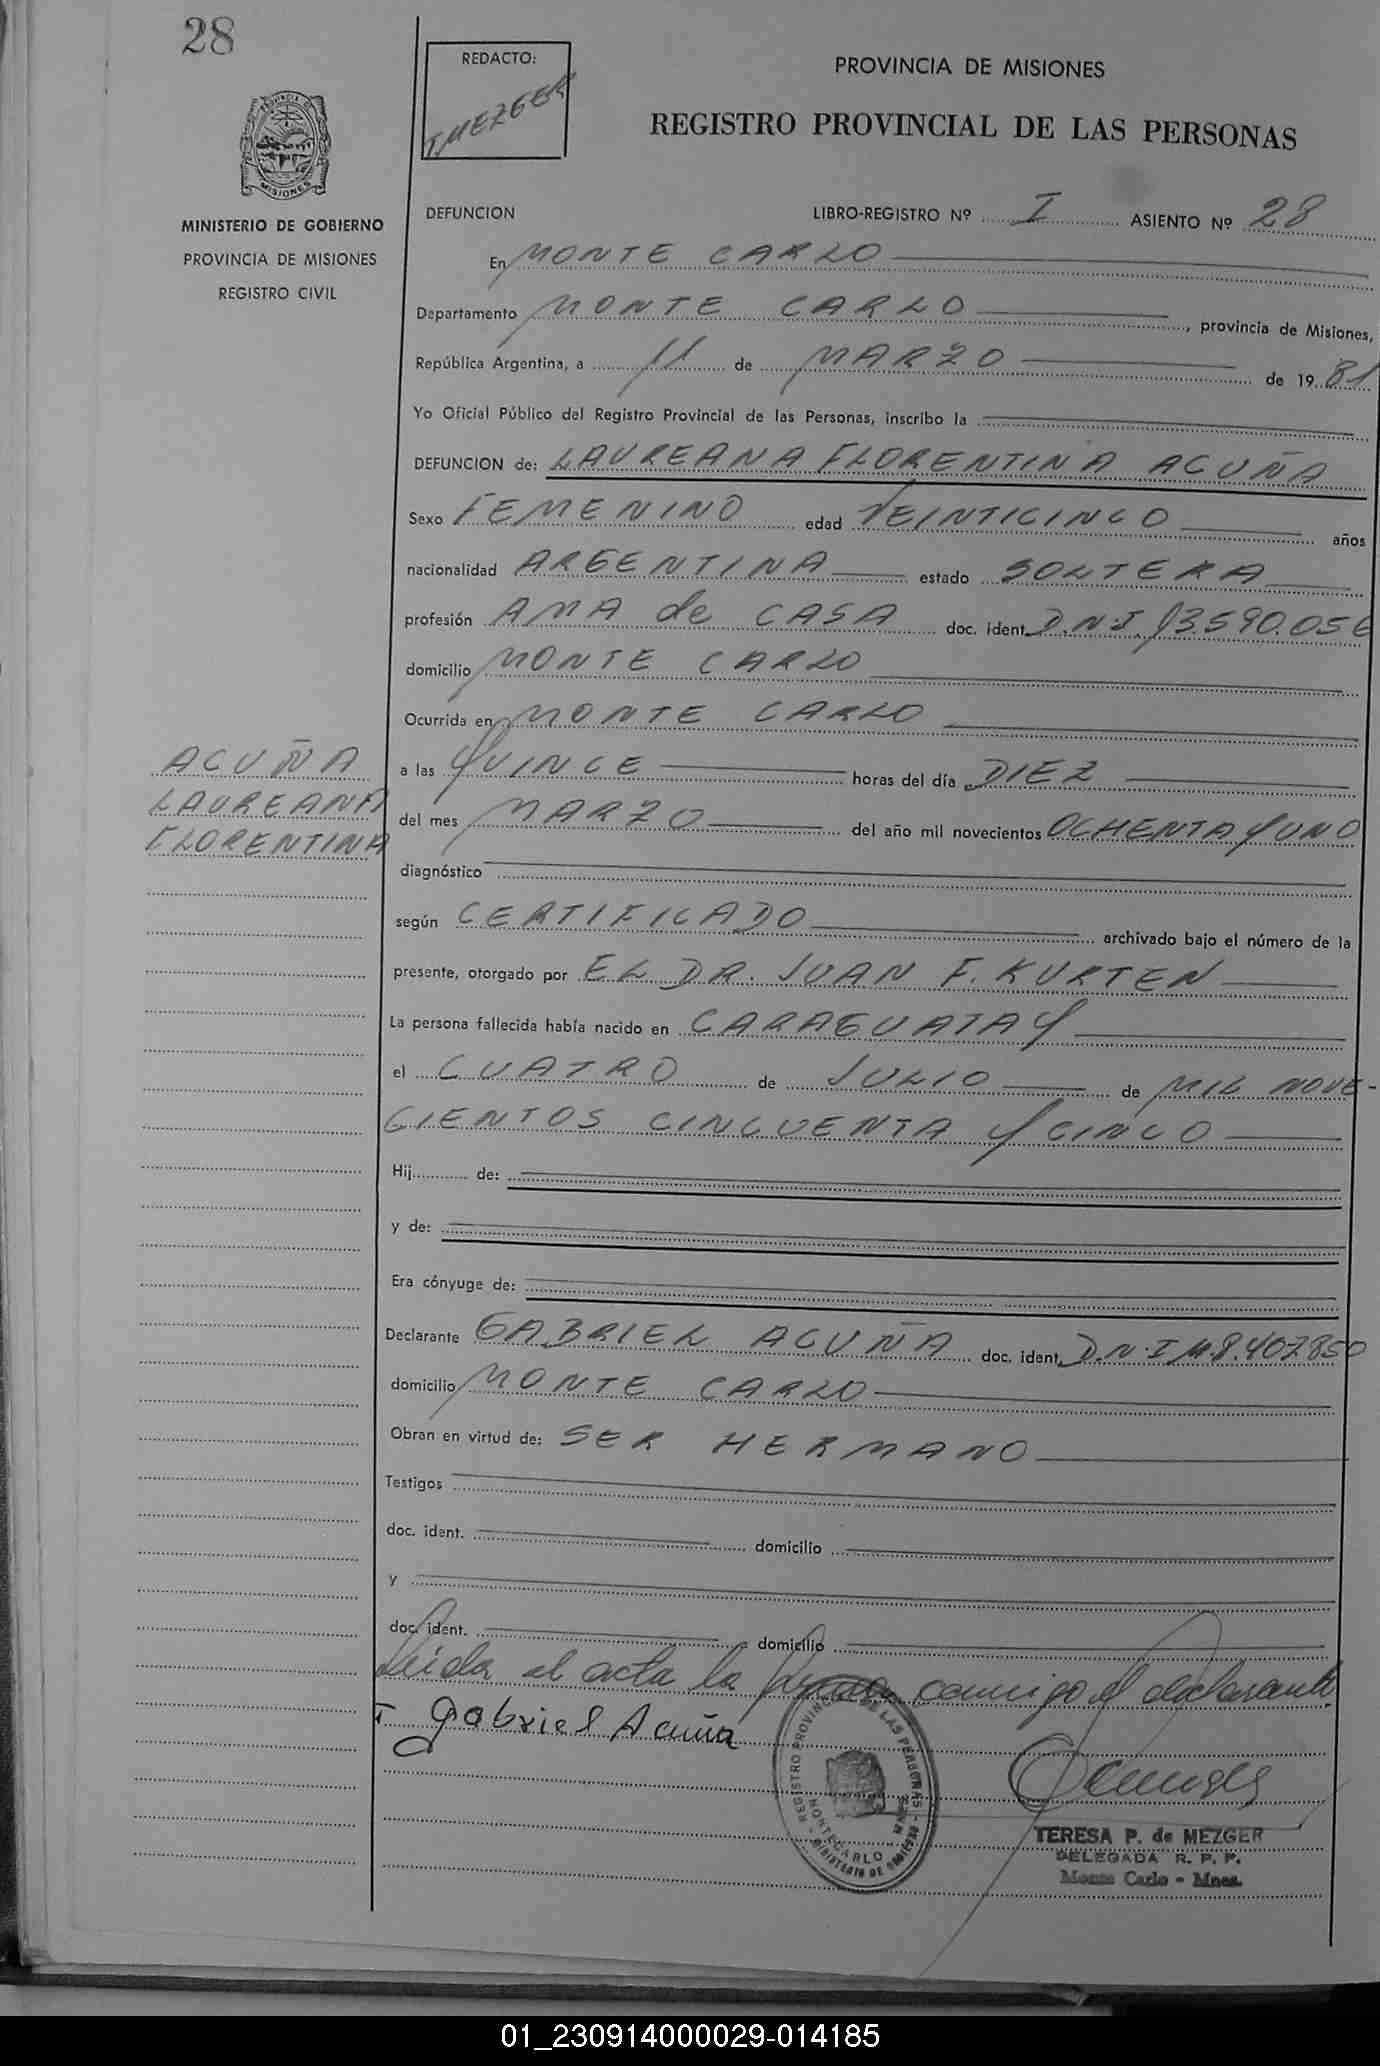 28
REDACTO:
T. MEZGER
PROVINCIA DE MISIONES
REGISTRO PROVINCIAL DE LAS PERSONAS
MINISTERIO DE GOBIERNO
PROVINCIA DE MISIONES
REGISTRO CIVIL
DEFUNCION LIBRO-REGISTRO Nº I ASIENTO Nº 28
En MONTE CARLO
Departamento MONTE CARLO, provincia de Misiones,
República Argentina, a 11 de MARZO de 1981
Yo Oficial Público del Registro Provincial de las Personas, inscribo la
DEFUNCION de: LAUREANA FLORENTINA ACUÑA
Sexo FEMENINO edad VEINTICINCO años
nacionalidad ARGENTINA estado SOLTERA
profesión AMA de CASA doc. ident. D.N.I. 13.590.056
domicilio MONTE CARLO
Ocurrida en MONTE CARLO
ACUÑA
LAUREANA
FLORENTINA
a las QUINCE horas del día DIEZ
del mes MARZO del año mil novecientos OCHENTA Y UNO
diagnóstico
según CERTIFICADO archivado bajo el número de la
presente, otorgado por EL DR. JUAN F. KURTEN
La persona fallecida había nacido en CARAGUATAY
el CUATRO de JULIO de MIL NOVE-
CIENTOS CINCUENTA Y CINCO
Hij de:
y de:
Era cónyuge de:
Declarante GABRIEL ACUÑA doc. ident. D.N.I M.8.407.850
domicilio MONTE CARLO
Obran en virtud de: SER HERMANO
Testigos
doc. ident. domicilio
y
doc. ident. domicilio
Leida el acta la firma conmigo el declarante
Gabriel Acuña
REGISTRO PROVINCIAL DE LAS PERSONAS
MONTECARLO
MINISTERIO DE GOBIERNO
TERESA P. de MEZGER
DELEGADA R. P. P.
Monte Carlo - Mnes.
01_230914000029-014185